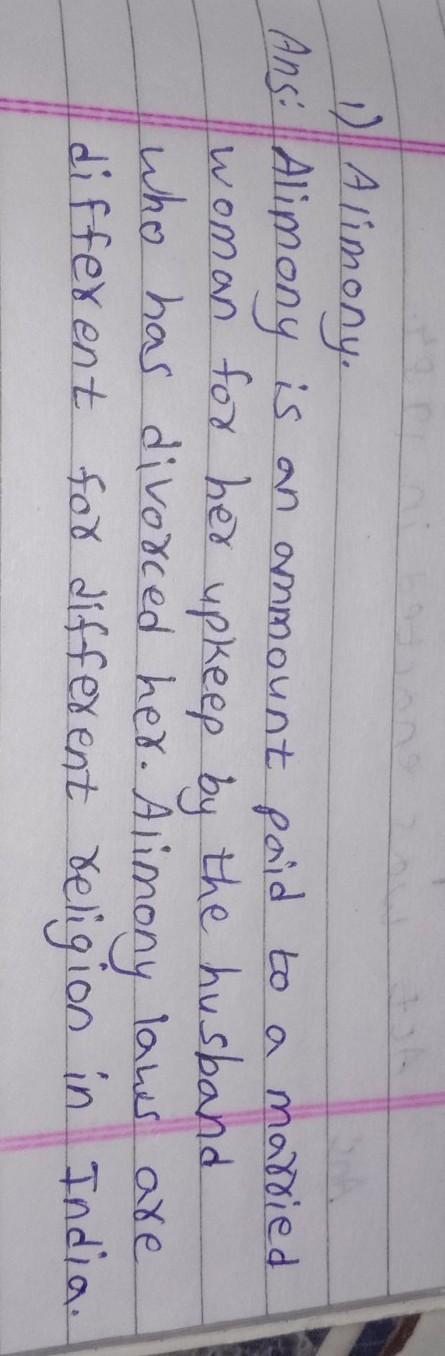 1) Alimony.
Ans: Alimony is an ammount paid to a married
woman for her upkeep by the husband
who has divorced her. Alimony laws are
different for different religion in India.